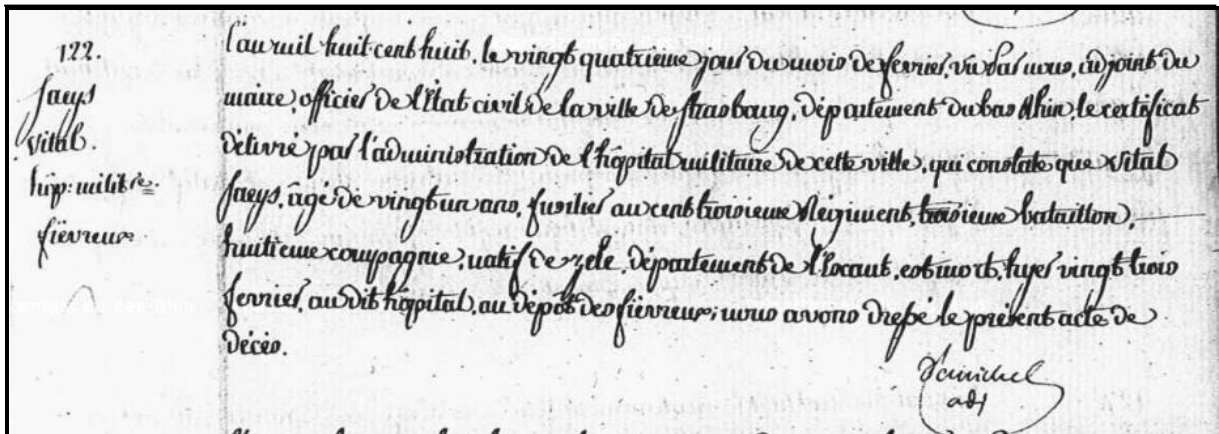 122.
Jaeys
Vital.
hôp. milit.re
fiévreux
L'an mil huit cent huit, le vingt quatrieme jour du mois de fevrier, vu par nous, adjoint du
maire, officier de l'Etat civil de la ville de strasbourg, département du bas Rhin, le certificat
delivré par l'administration de l'hôpital militaire de cette ville, qui constate que Vital
Jaeys, âgé de vingt un ans, fusilier au cent troisieme Régiment, troisieme bataillon,
huitieme compagnie, natif de zele, département de l'Escaut, est mort, hyer vingt trois
fevrier, au dit hôpital, au depôt des fiévreux; nous avons dressé le present acte de
décès.
adj